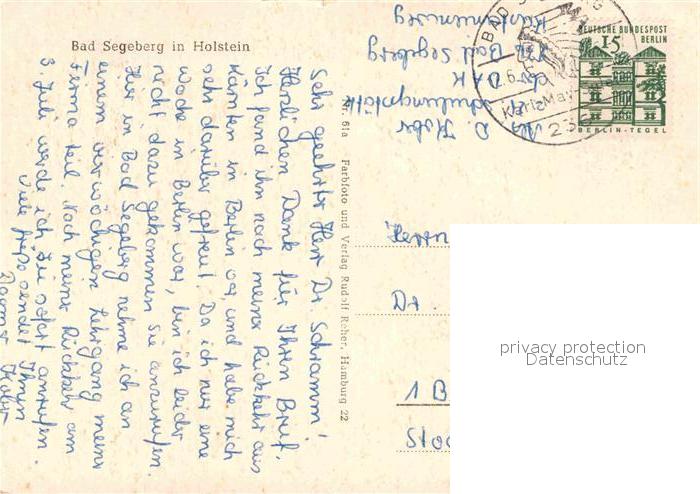 Bad Segeberg in Holstein
Sehr geehrter Herr Dr. Schramm!
Herzlichen Dank für Ihren Brief.
Ich fand ihn nach meiner Rückkehr aus
Kärnten in Berlin vor, und habe mich
sehr darüber gefreut. Da ich nur eine
Woche in Berlin war, bin ich leider
nicht dazu gekommen Sie anzurufen.
Hier in Bad Segeberg nehme ich an
einem vierwöchigen Lehrgang meiner
Firma teil. Nach meiner Rückkehr am
3. Juli werde ich Sie sofort anrufen.
Viele Grüße sendet Ihnen
Nr. 61a Farbfoto und Verlag Rudolf Reher, Hamburg 22
D.
Schulungsstätte
der DAK
Bad Segeberg
DEUTSCHE BUNDESPOST
BERLIN
15
BERLIN-TEGEL
BAD
Karl-May-
23
Herrn
Dr.
1 B
privacy protection
Datenschutz